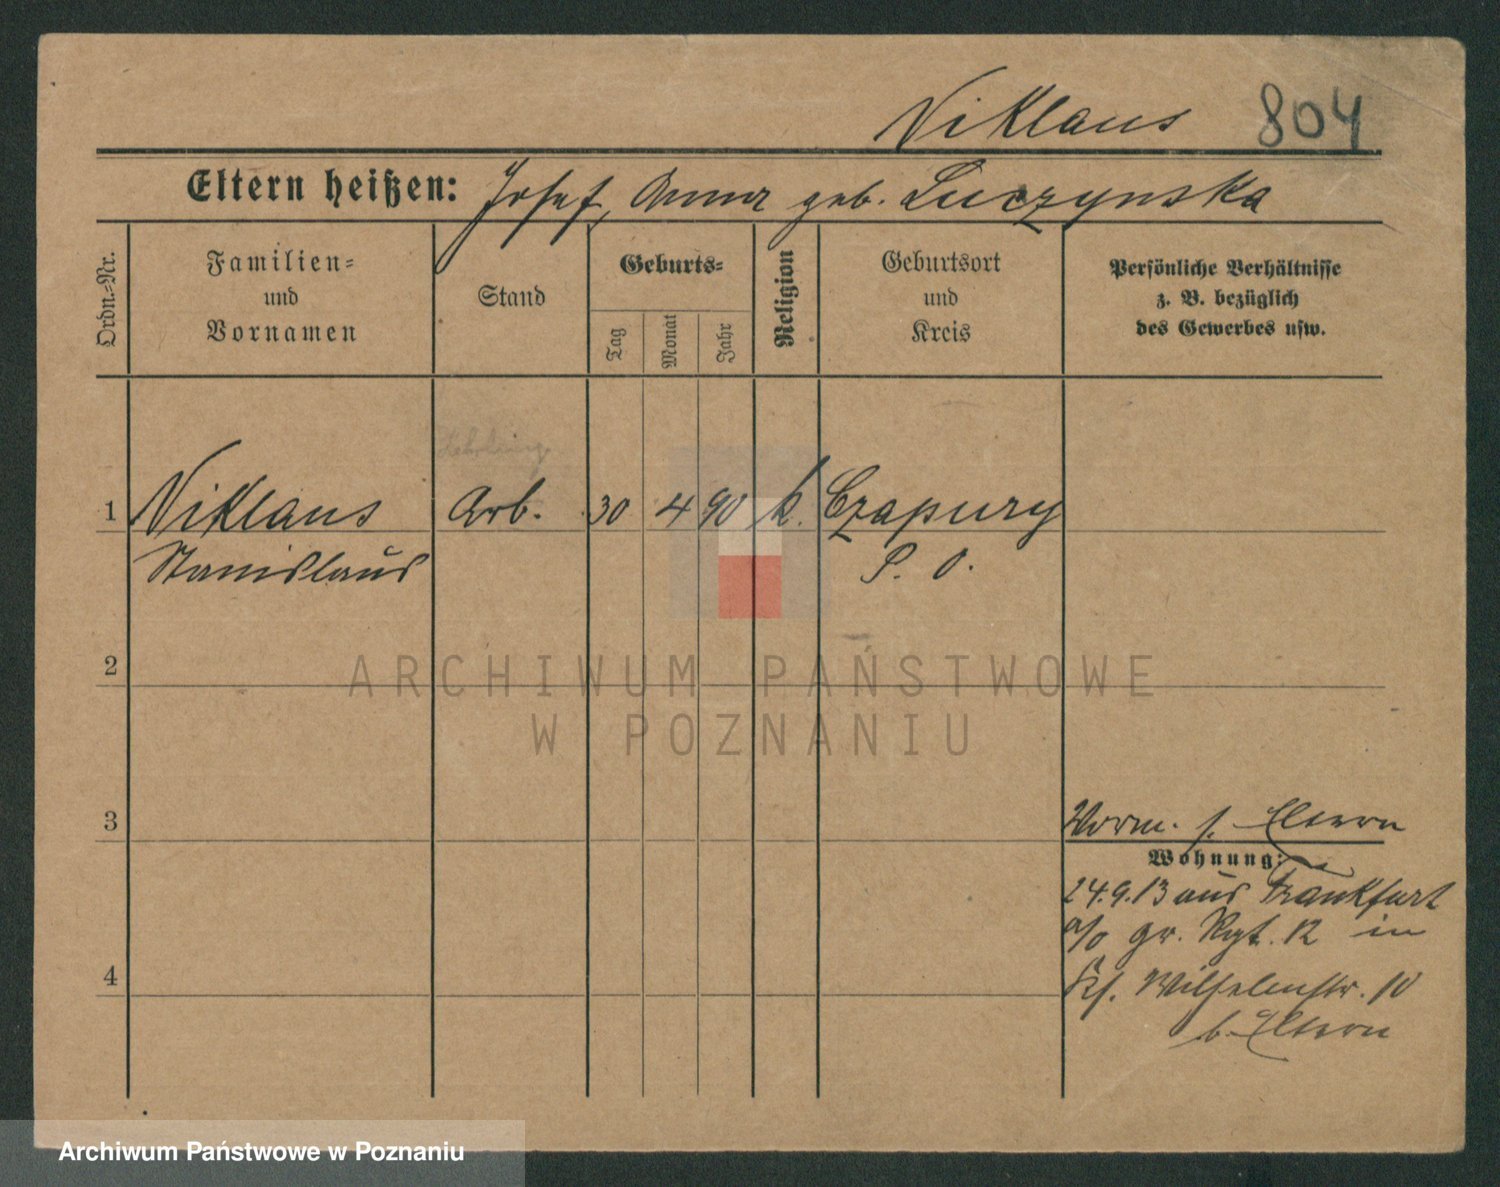 Niklaus 804
Eltern heißen: Josef, Anna geb. Luczynska
Ordn.-Nr.
Familien-
und
Vornamen
Stand
Geburts-
Tag
Monat
Jahr
Religion
Geburtsort
und
Kreis
Persönliche Verhältnisse
z. B. bezüglich
des Gewerbes usw.
1 Niklaus Arb. 30 4 90 k. Czapury
Stanislaus P. O.
2
ARCHIWUM PAŃSTWOWE
W POZNANIU
3
Vorm. s. Eltern
Wohnung:
24.9.13 aus Frankfurt
a/O gr. Rgt. 12 in
4
Wilhelmstr. 10
b. Eltern
Archiwum Państwowe w Poznaniu